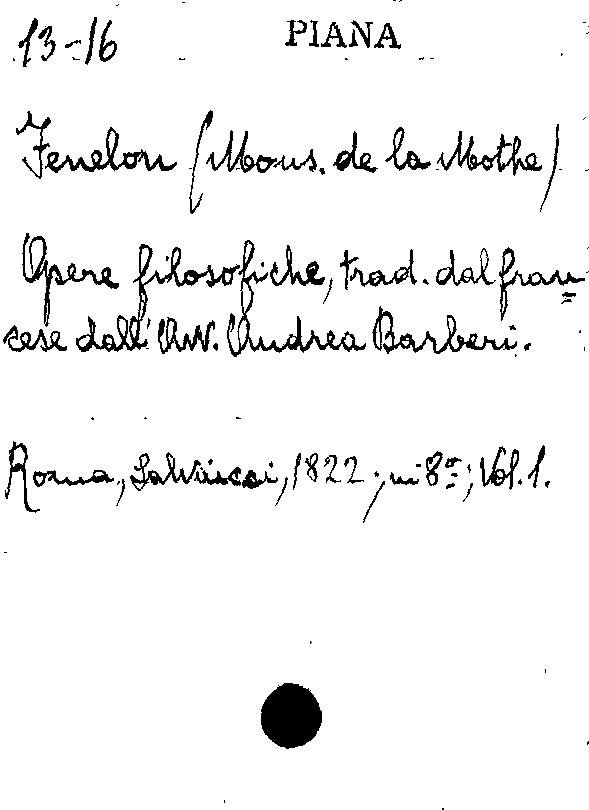 13-16 PIANA
Fenelon (Mons. de la Mothe)
Opere filosofiche, trad. dal fran=
cese dall'Avv. Andrea Barberi.
Roma, Salviucci, 1822; in 8º; Vol. 1.